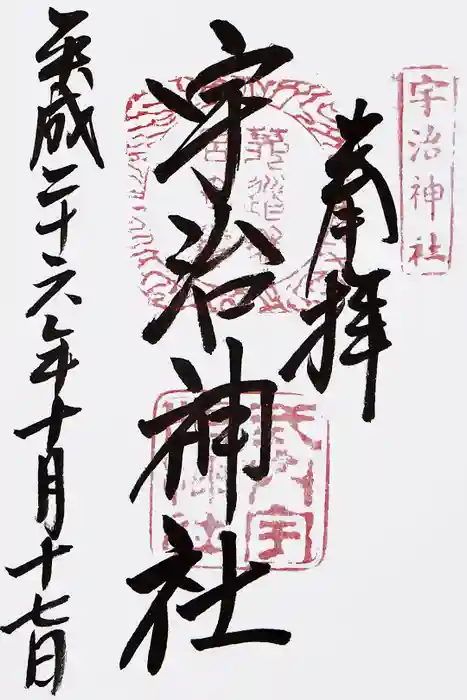 宇治神社
奉拝
宇治神社
平成二十六年十月十七日